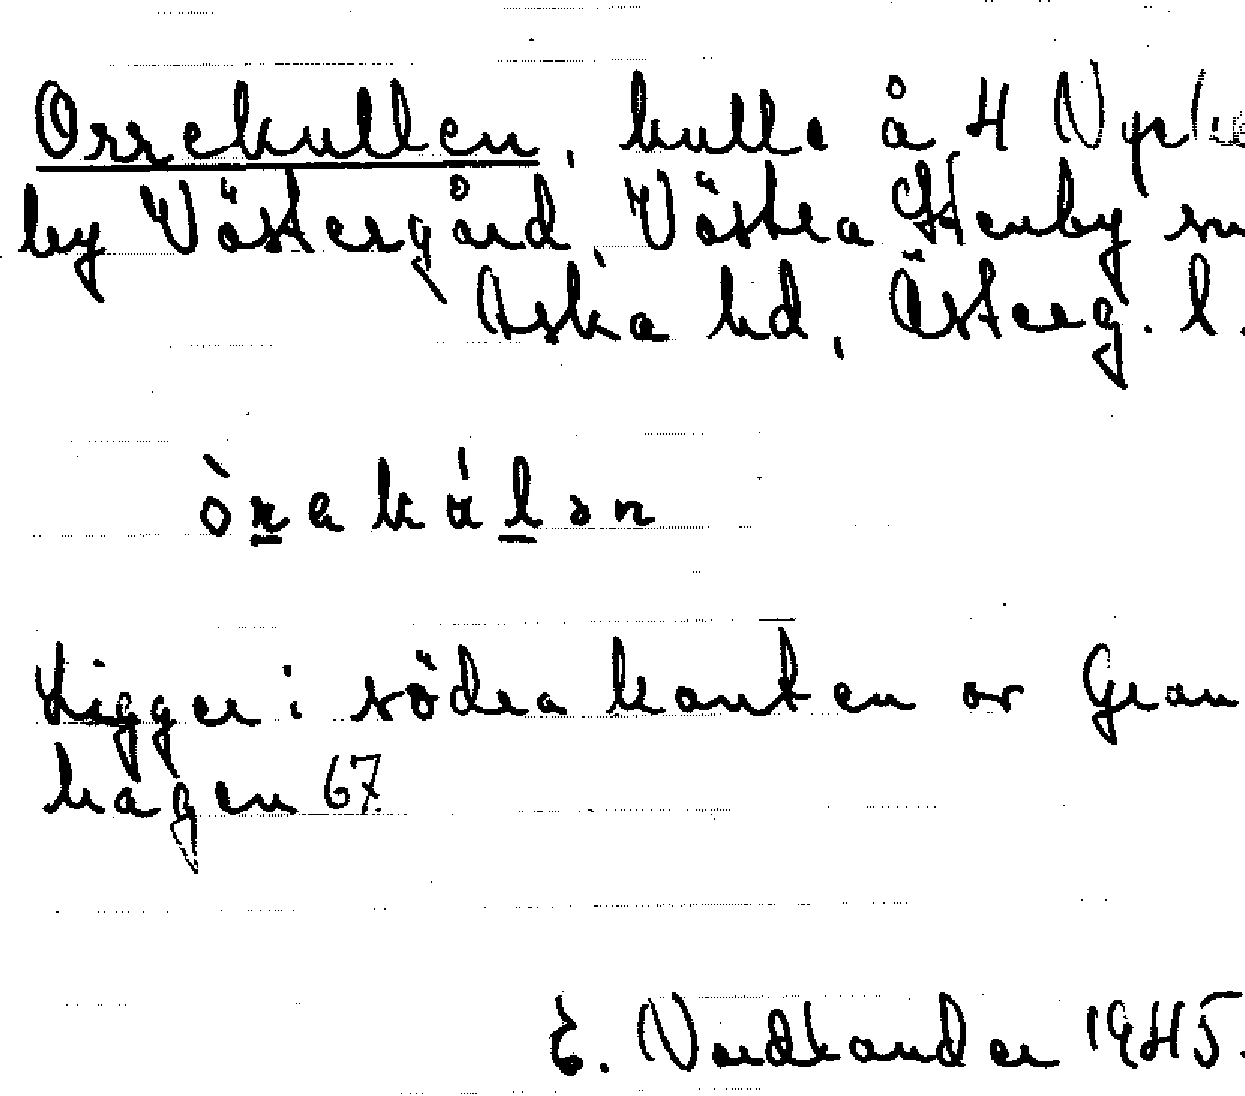 Orrekullen, kulle å 4 Nyckel
by Västergård, Västra Stenby sn
Aska hd, Österg. l.
òrakúlən
Ligger i södra kanten av Gran
hagen 67
E. Nordkander 1945.